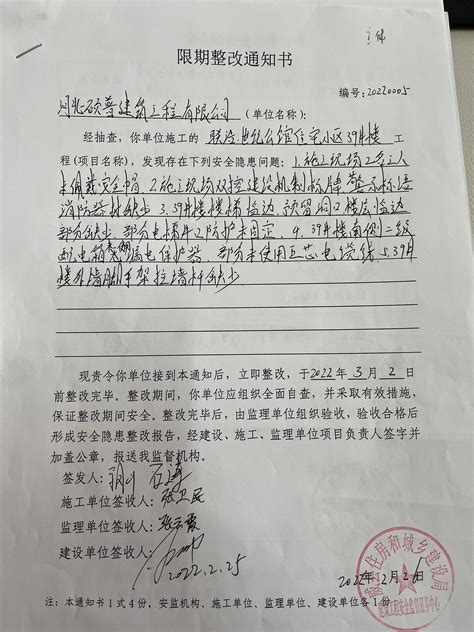 限期整改通知书
编号:20220005
河北硕尊建筑工程有限公司(单位名称):
经抽查,你单位施工的 联港世纪公馆住宅小区39#楼 工
程(项目名称),发现存在下列安全隐患问题:1.施工现场2名工人
未佩戴安全帽 2.施工现场双控建设机制标牌、警示标语
消防器材缺少 3.39#楼楼梯临边、预留洞口楼层临边
部分缺少,部分电梯井口防护未固定 4.39#楼南侧二级
配电箱 漏电保护器,部分未使用五芯电缆线 5.39#
楼外墙脚手架拉墙杆缺少
现责令你单位接到本通知后,立即整改,于2022年3月2日
前整改完毕。整改期间,你单位应组织全面自查,并采取有效措施,
保证整改期间安全。整改完毕后,由监理单位组织验收,验收合格后
形成安全隐患整改报告,经建设、施工、监理单位项目负责人签字并
加盖公章,报送我监督机构。
签发人:
施工单位签收人:张卫民
监理单位签收人:
建设单位签收人:
2022.2.25
2022年2月25日
住房和城乡建设局
注:本通知书1式4份,安监机构、施工单位、监理单位、建设单位各1份